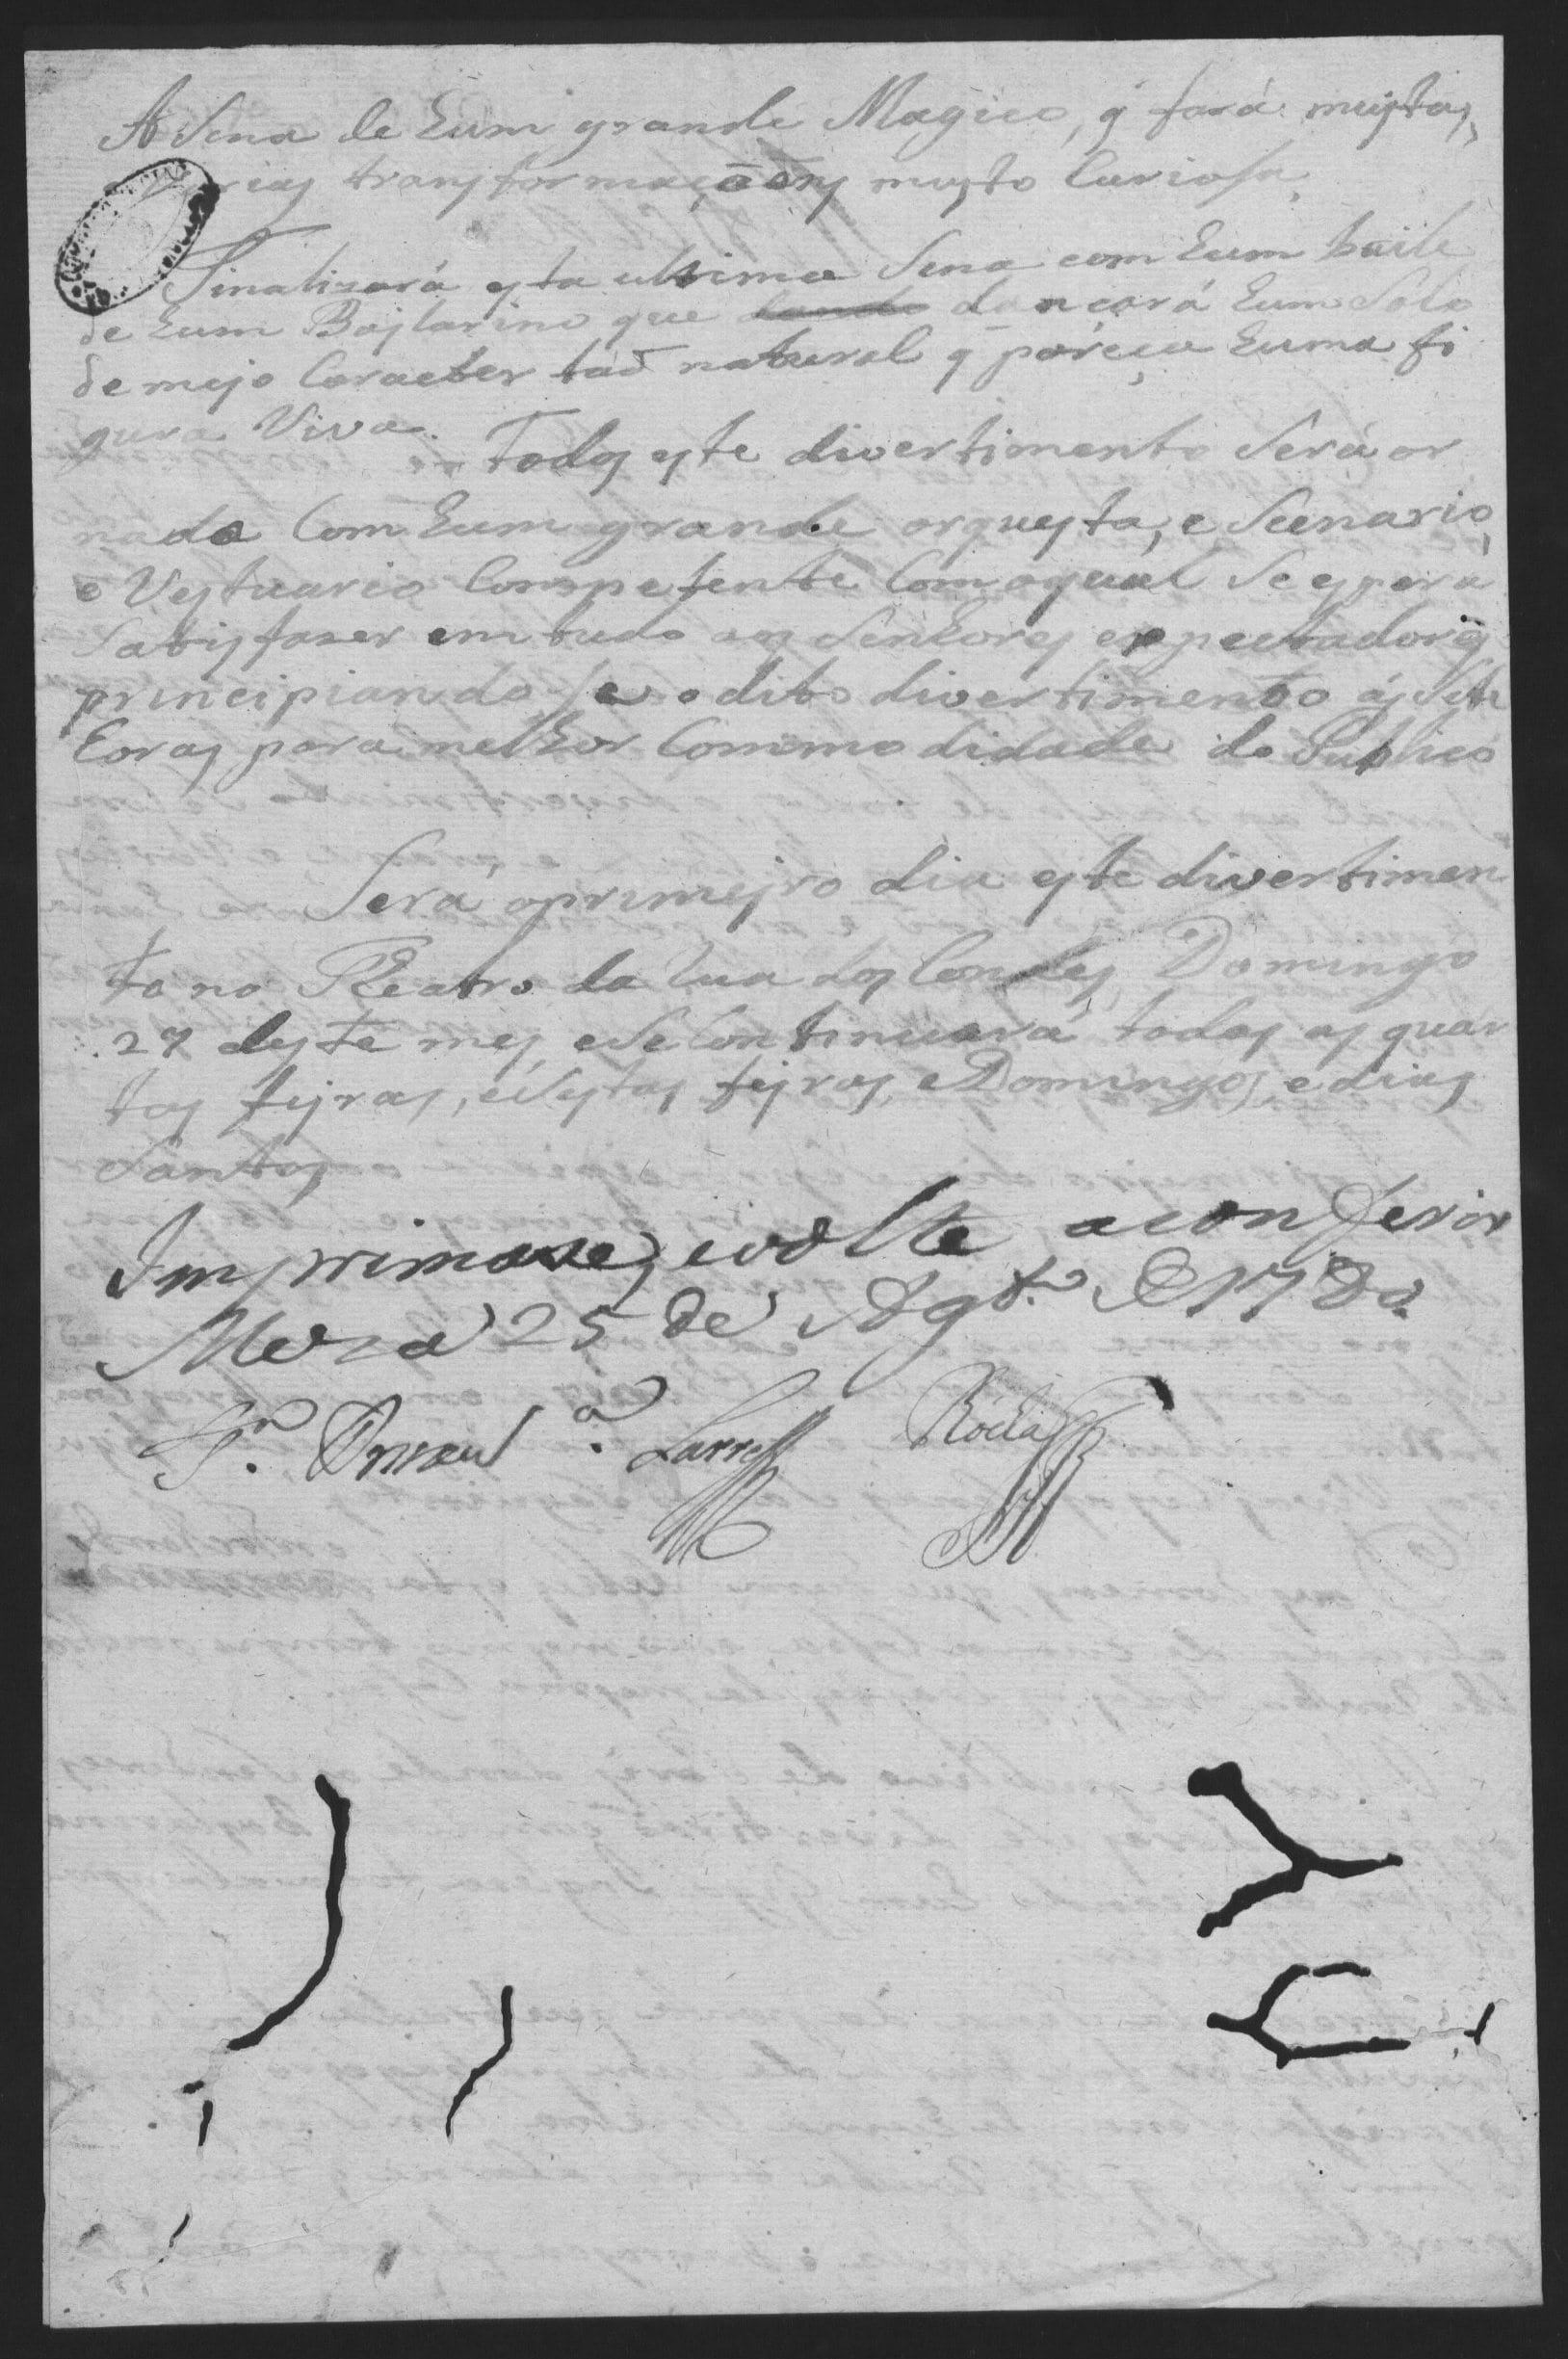 A Sena de hum grande Magico, q̃ fará muytas,
varias transformaçoẽs muyto Curiosa,
Finalizará esta ultima Sena com hum baile
de hum Baylarino que dançará hum Sólo
de meyo Caracter taõ natural q̃ pareça huma fi
gura Viva.
Todo este divertimento Será or
nado Com hum grande orquesta, e Scenario,
e Vestuario Competente Com oqual Se espera
Satisfazer em tudo aos Senhores expectadores
principiando se o dito divertimento ás Sete
horas para melhor Commodidade do Publico
Será oprimeyro dia este divertimen
to no Theatro da Rua dos Condes Domingo
27 deste mes, eSe Continuará todas as quar
tas feyras, eSestas feyras, eDomingos, edias
Santos
Imprimase, evolte aconferir
Meza 25 de Agt.º de 1780.
Rocha